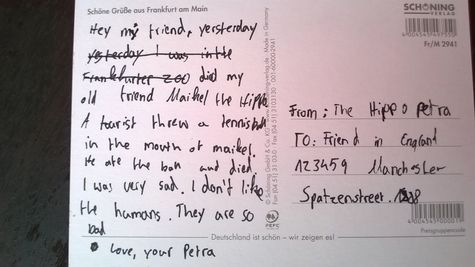 Schöne Grüße aus Frankfurt am Main
Hey my friend, yersterday
yesterday I was in the
Frankfurter zoo died my
old friend Maikel the Hippo
A tourist threw a tennisball
in the mouth of maikel.
He ate the ball and died.
I was very sad. I don't like
the humans. They are so
bad
Love, your Petra
SCHÖNING
VERLAG
Fr/M 2941
From: The Hippo Petra
TO: Friend in England
123459 Manchester
Spatzenstreet.
Preisgruppencode
Deutschland ist schön – wir zeigen es!
PEFC